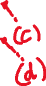 (c)
(d)